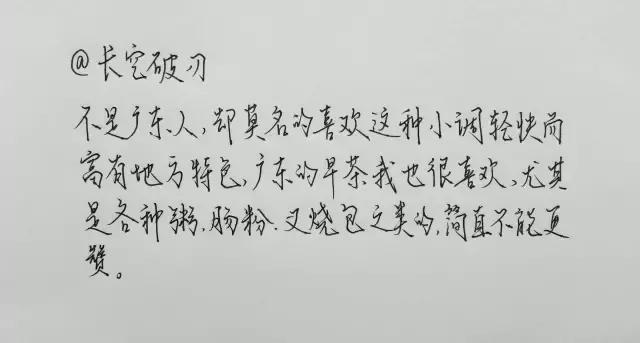 @长空破刃
不是广东人,却莫名的喜欢这种小调轻快而
富有地方特色,广东的早茶我也很喜欢,尤其
是各种粥.肠粉.叉烧包之类的,简直不能更
赞。